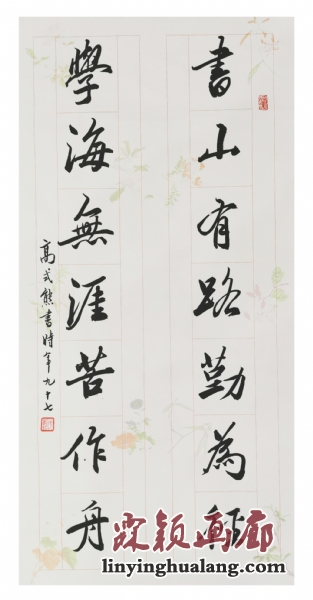 書山有路勤為
學海無涯苦作舟
高式熊書時年九十七
霖颖画廊
linyinghualang.com